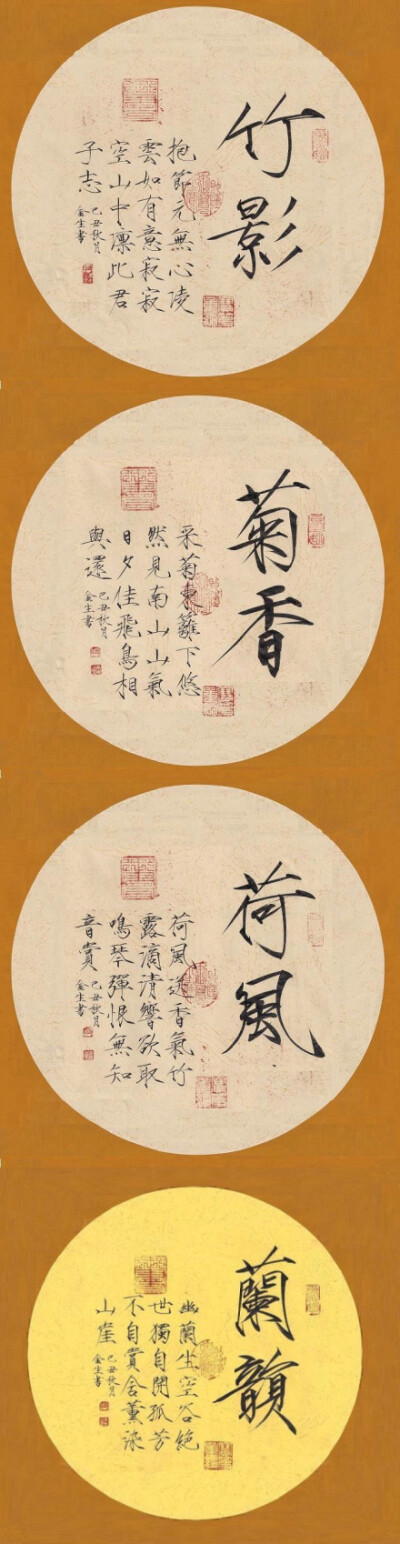 竹影
抱節元無心陵
雲如有意寂寂
空山中凛此君
子志
己丑秋月
金生書
菊香
采菊東籬下悠
然見南山山氣
日夕佳飛鳥相
與還
己丑秋月
金生書
荷風
荷風送香氣竹
露滴清響欲取
鳴琴彈恨無知
音賞
己丑秋月
金生書
蘭韻
幽蘭生空谷絶
世獨自開孤芳
不自賞含薰染
山崖
己丑秋月
金生書